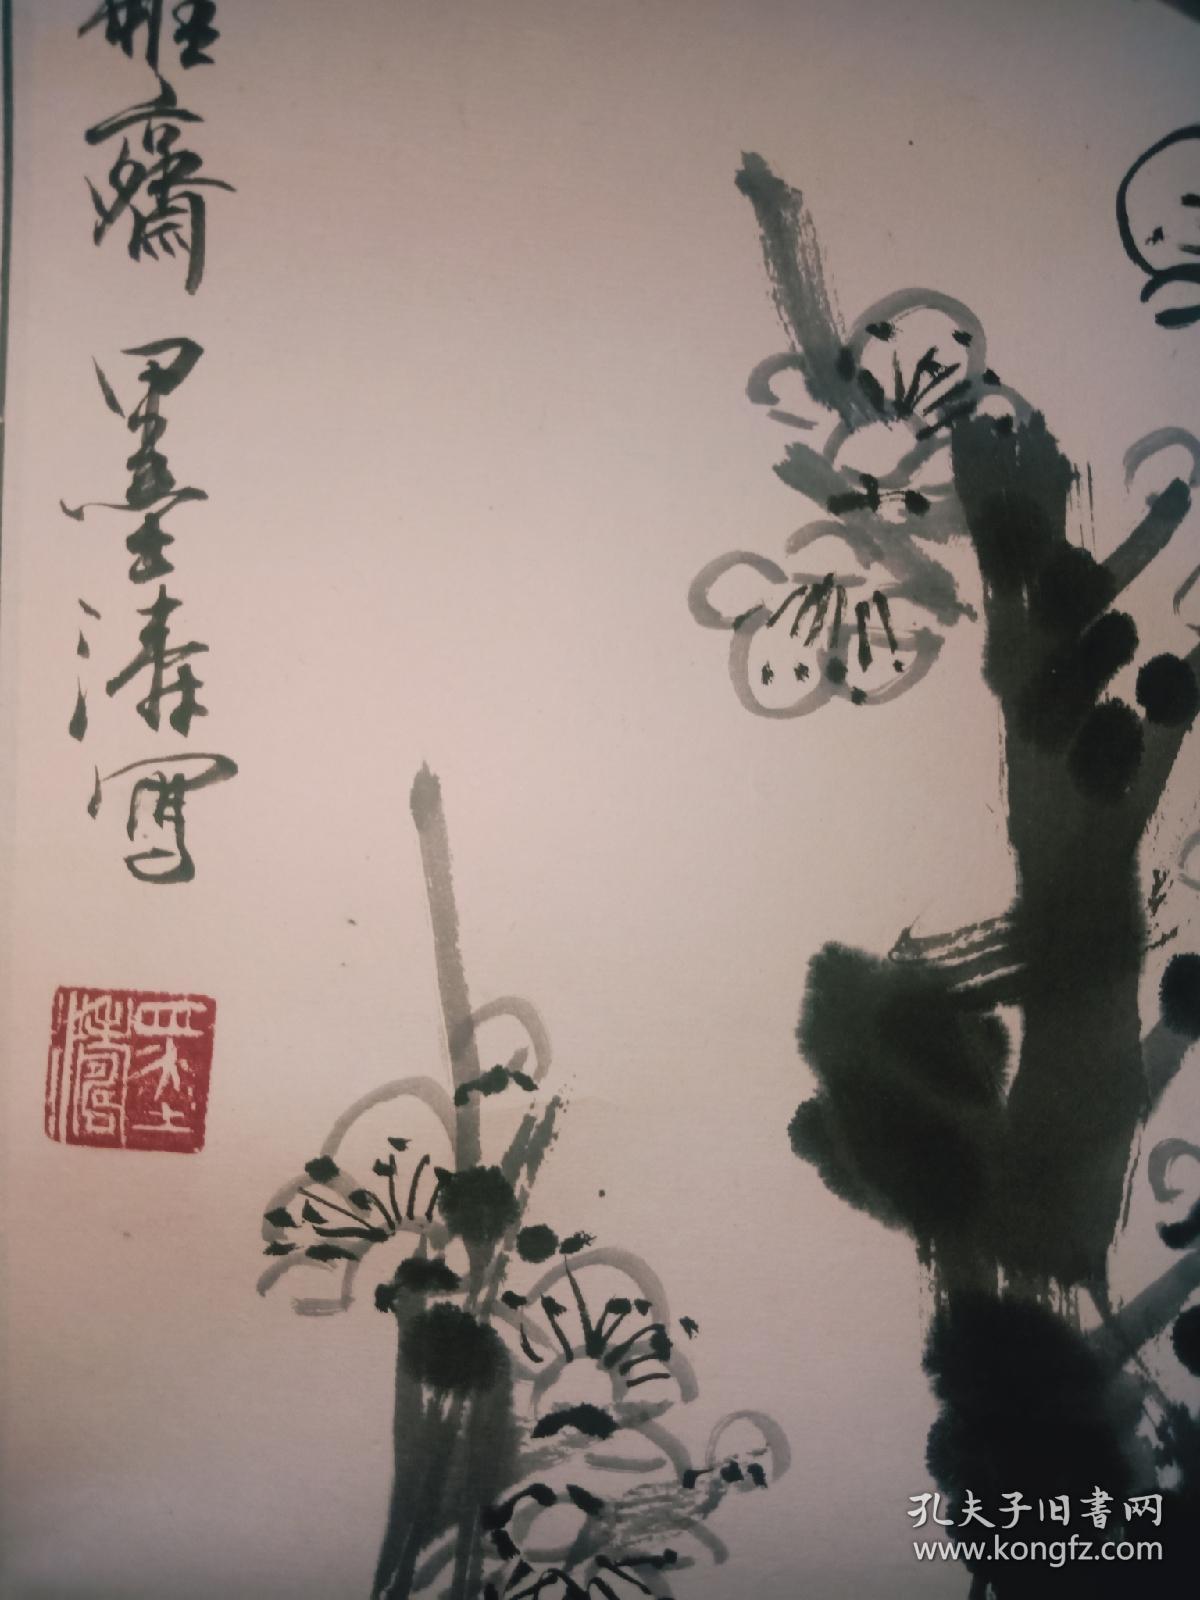 雅齋墨濤寫
孔夫子旧書网
www.kongfz.com